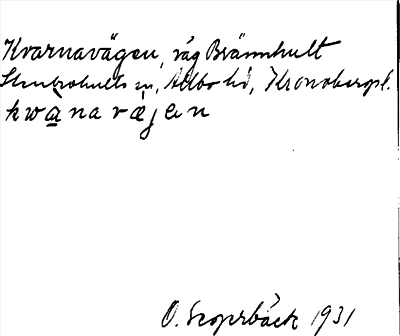 Kvarnavägen, väg Brännhult
Stenbrohults sn, Allbo hd, Kronobergs l.
kwa̲navæjen
O. 1931